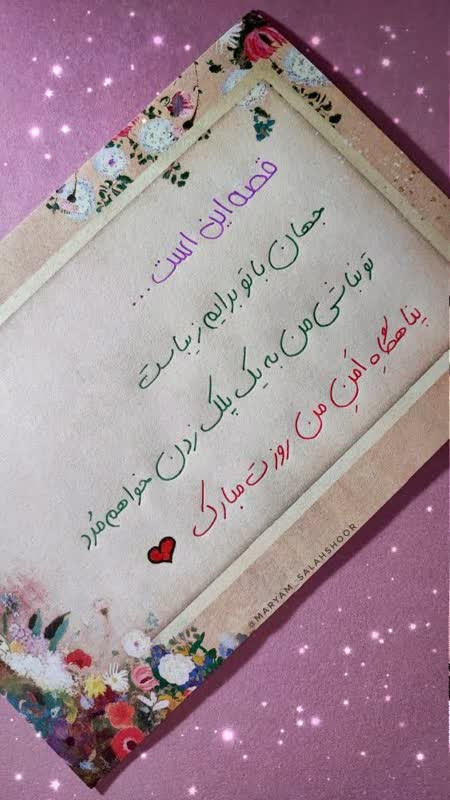 قصه این است...
جهان با تو برایم زیباست
تو نباشی من به یک پلک زدن خواهم مُرد
پناهگاهِ اَمنِ من روزت مبارک
@MARYAM_SALAHSHOOR